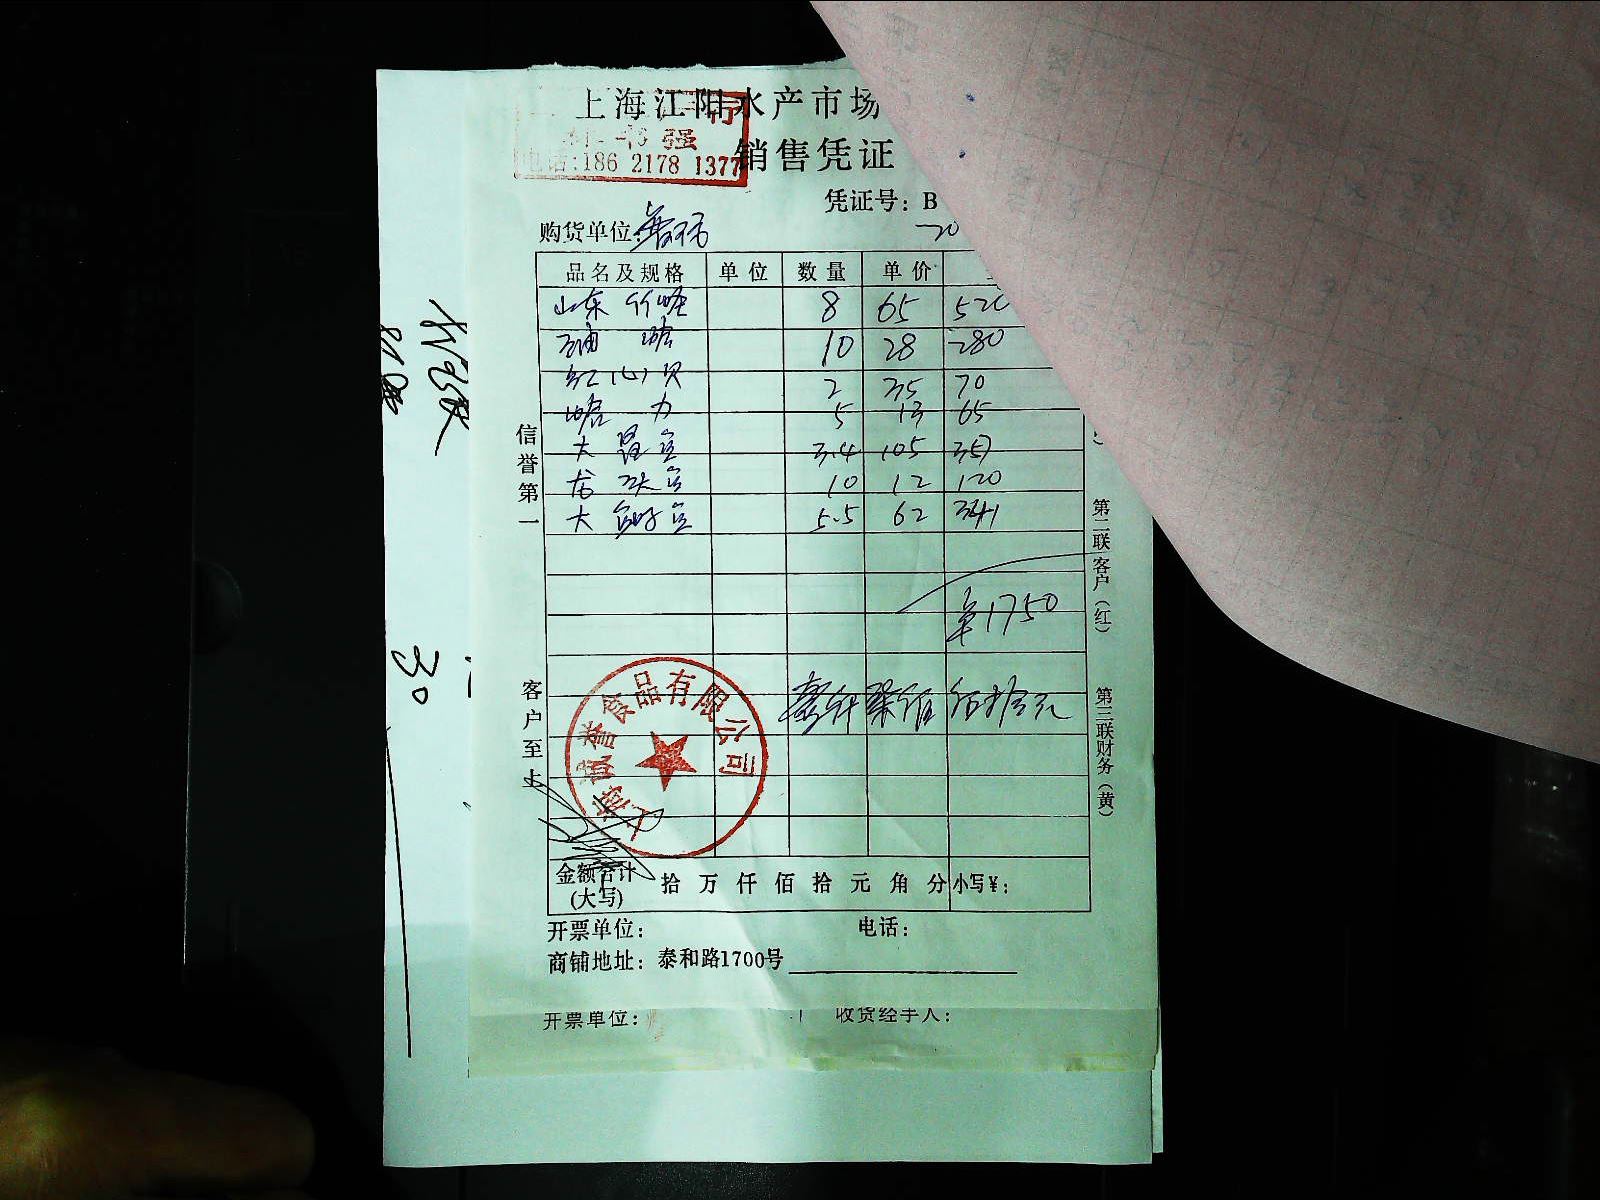 上海江阳水产市场
强
电话:186 2178 1377
销售凭证
凭证号: B
购货单位:
品名及规格 单位 数量 单价
山东 竹蛏 8 65 520
油蛤 10 28 280
红心贝 2 35 70
蛤 力 5 13 65
大 3.4 105 357
龙 10 12 120
大 5.5 62 341
¥1750
壹仟柒佰伍拾元
上海诚誉食品有限公司
信誉第一
客户至上
第二联客户(红)
第三联财务(黄)
金额合计(大写) 拾 万 仟 佰 拾 元 角 分 小写¥:
开票单位: 电话:
商铺地址: 泰和路1700号
开票单位: 收货经手人:
30